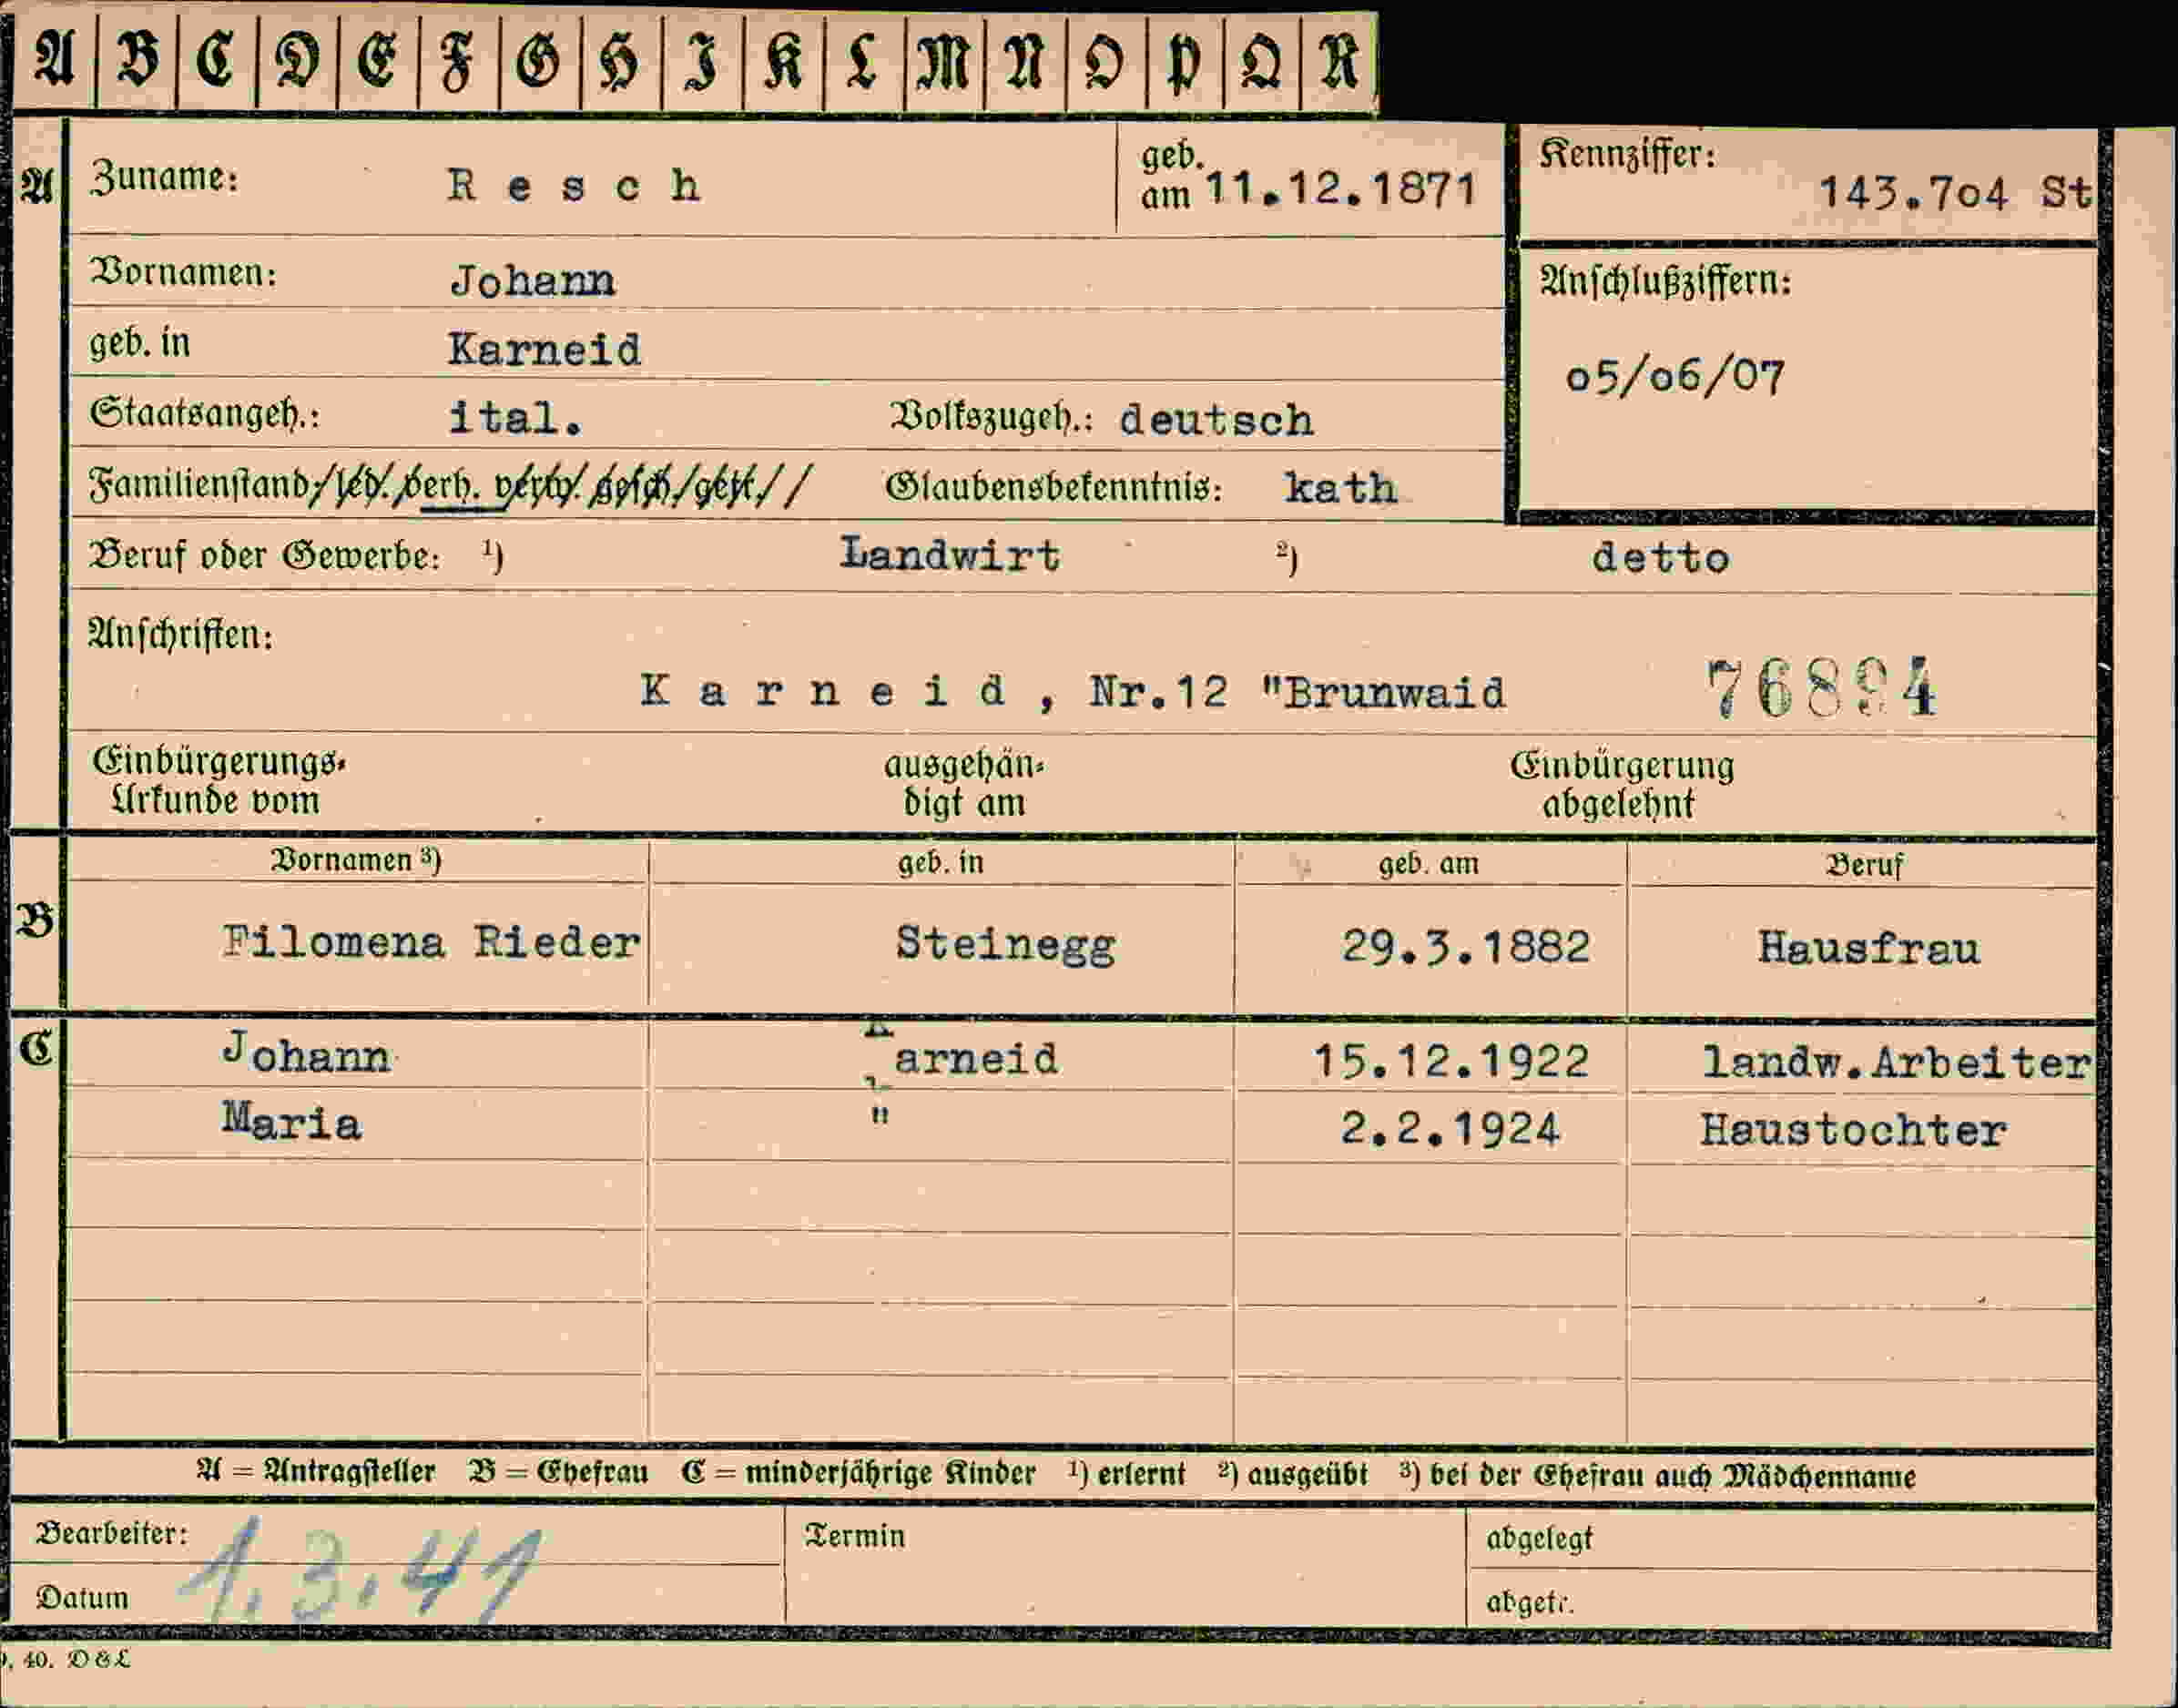 A B C D E F G H I K L M N O P Q R
A Zuname: Resch geb. am 11.12.1871 Kennziffer: 143.7o4 St
Vornamen: Johann Anschlußziffern:
geb. in Karneid o5/o6/07
Staatsangeh.: ital. Volkszugeh.: deutsch
Familienstand: led. verh. verw. gesch. get. Glaubensbekenntnis: kath
Beruf oder Gewerbe: ¹) Landwirt ²) detto
Anschriften:
Karneid, Nr.12 "Brunwaid 76894
Einbürgerungs- ausgehän- Einbürgerung
Urkunde vom digt am abgelehnt
Vornamen ³) geb. in geb. am Beruf
B Filomena Rieder Steinegg 29.3.1882 Hausfrau
C Johann Karneid 15.12.1922 landw.Arbeiter
Maria " 2.2.1924 Haustochter
A = Antragsteller B = Ehefrau C = minderjährige Kinder ¹) erlernt ²) ausgeübt ³) bei der Ehefrau auch Mädchenname
Bearbeiter: Termin abgelegt
1.3.41
Datum abgetr.
40. D & L